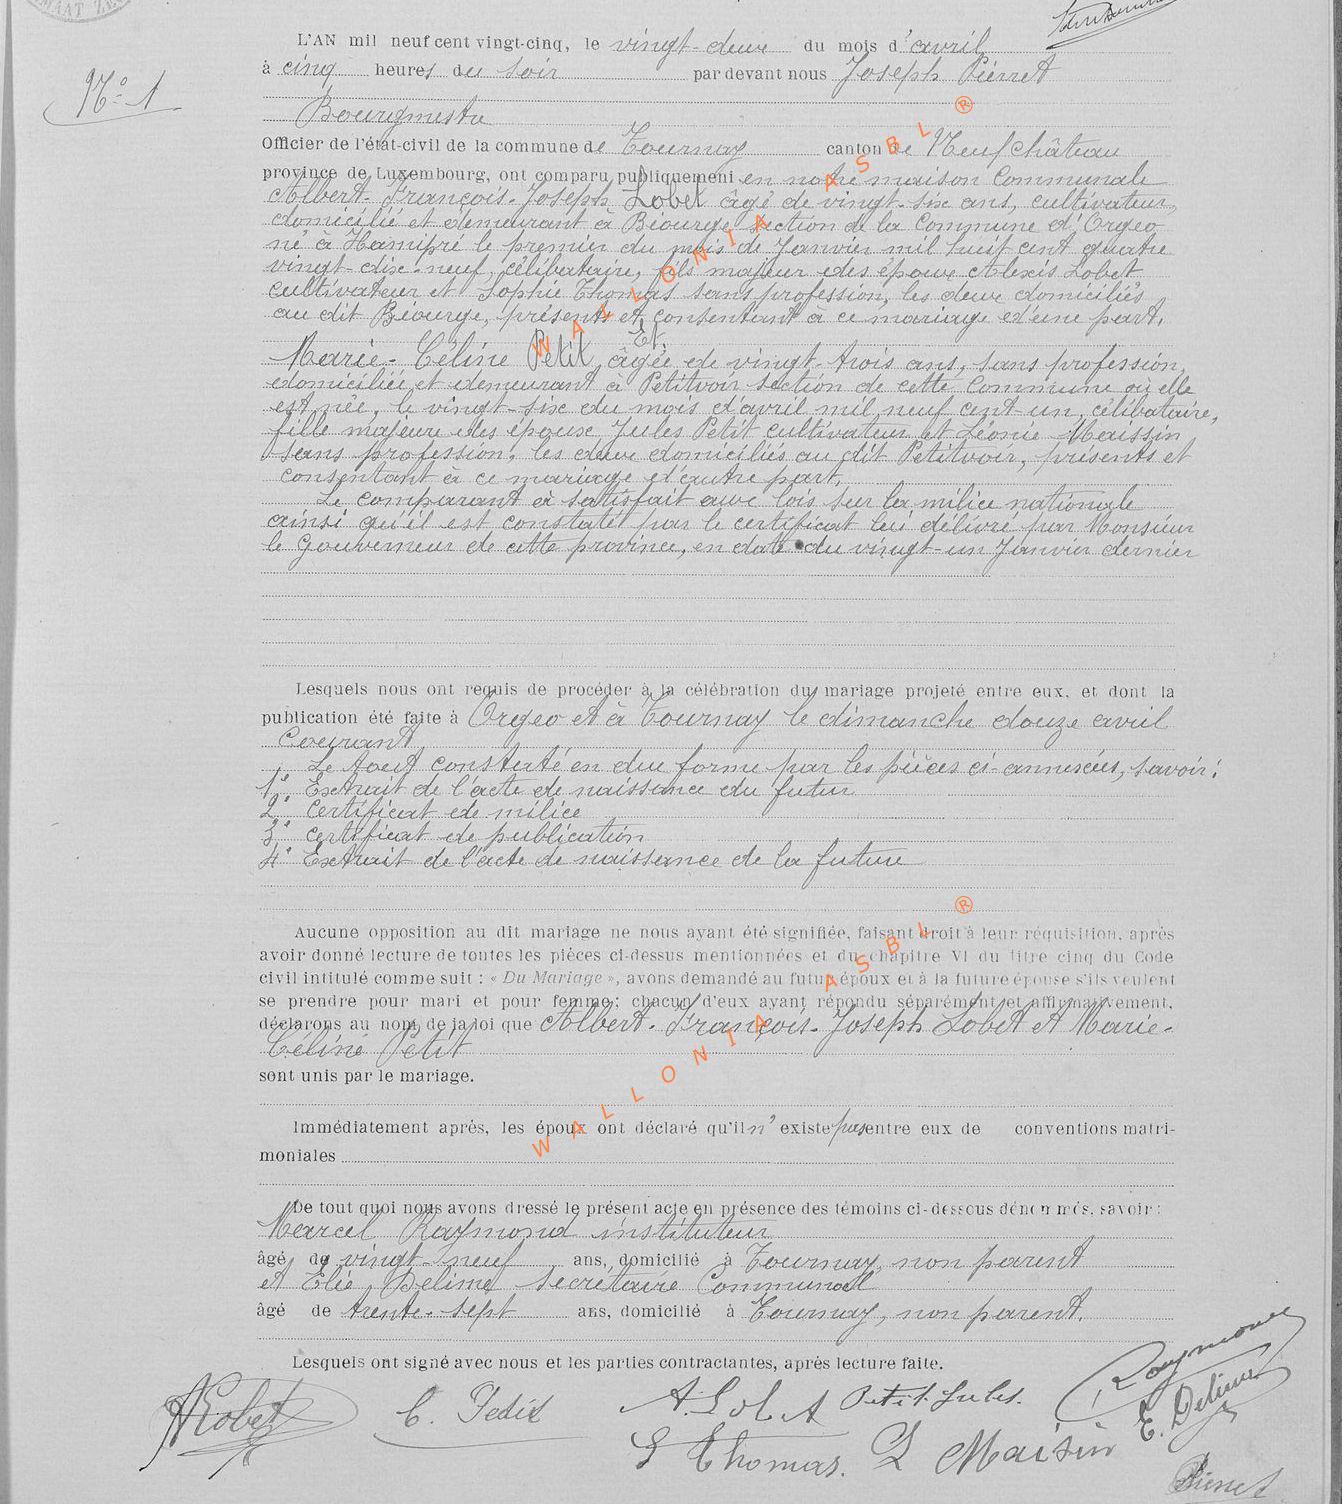 MAAT ZE
L'AN mil neuf cent vingt-cinq, le vingt-deux du mois d'avril
N° 1
à cinq heures du soir par devant nous Joseph Pierret
Bourgmestre
Officier de l'état-civil de la commune de Tournay canton de Neufchâteau
province de Luxembourg, ont comparu publiquement en notre maison Communale
Albert-François-Joseph Lobet âgé de vingt-six ans, cultivateur,
domicilié et demeurant à Biourge section de la Commune d'Orgeo
né à Hamipré le premier du mois de Janvier mil huit cent quatre
vingt-dix-neuf, célibataire, fils majeur des époux Alexis Lobet
cultivateur et Sophie Thomas sans profession, les deux domiciliés
au dit Biourge, présents et consentant à ce mariage d'une part,
Et
Marie-Céline Petit, âgée de vingt-trois ans, sans profession,
domiciliée et demeurant à Petitvoir section de cette Commune où elle
est née, le vingt-six du mois d'avril mil neuf cent-un, célibataire,
fille majeure des époux Jules Petit cultivateur et Léonie Maissin
sans profession, les deux domiciliés au dit Petitvoir, présents et
consentant à ce mariage d'autre part,
Le comparant a satisfait aux lois sur la milice nationale
ainsi qu'il est constaté par le certificat lui délivré par Monsieur
le Gouverneur de cette province, en date du vingt-un Janvier dernier
Lesquels nous ont requis de procéder à la célébration du mariage projeté entre eux, et dont la
publication été faite à Orgeo et à Tournay le dimanche douze avril
Courant
Le tout constaté en due forme par les pièces ci-annexées, savoir:
1° Extrait de l'acte de naissance du futur
2° Certificat de milice
3° Certificat de publication
4° Extrait de l'acte de naissance de la future
Aucune opposition au dit mariage ne nous ayant été signifiée, faisant droit à leur réquisition, après
avoir donné lecture de toutes les pièces ci-dessus mentionnées et du chapitre VI du titre cinq du Code
civil intitulé comme suit : « Du Mariage », avons demandé au futur époux et à la future épouse s'ils veulent
se prendre pour mari et pour femme; chacun d'eux ayant répondu séparément et affirmativement,
déclarons au nom de la loi que Albert-François-Joseph Lobet et Marie-
Céline Petit
sont unis par le mariage.
Immédiatement après, les époux ont déclaré qu'il n'existe pas entre eux de conventions matri-
moniales
De tout quoi nous avons dressé le présent acte en présence des témoins ci-dessous dénommés, savoir :
Marcel Raymond instituteur
âgé de vingt-neuf ans, domicilié à Tournay, non parent
et Elie Delime secrétaire Communal
âgé de trente-sept ans, domicilié à Tournay, non parent.
Lesquels ont signé avec nous et les parties contractantes, après lecture faite.
Raymond
A Lobet C. Petit A. Lobet Petit Jules. E. Delime
S Thomas. L Maisin
Pierret
WALLONIA ASBL ®
WALLONIA ASBL ®